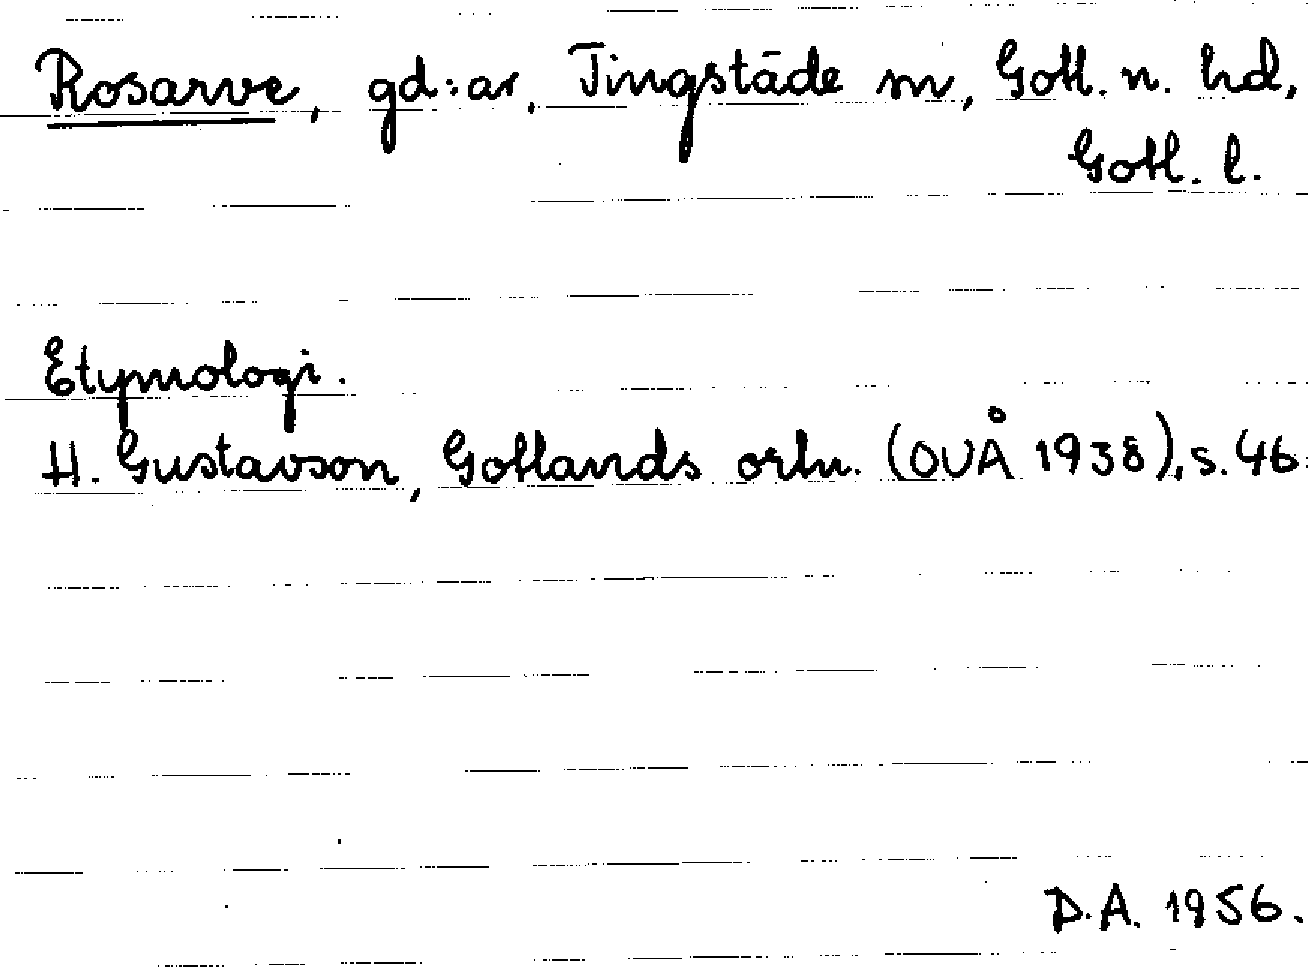 Rosarve, gd:ar, Tingstäde sn, Gotl. n. hd,
Gotl. l.
Etymologi.
H. Gustavson, Gotlands ortn. (OUÅ 1938), s. 46.
D.A. 1956.